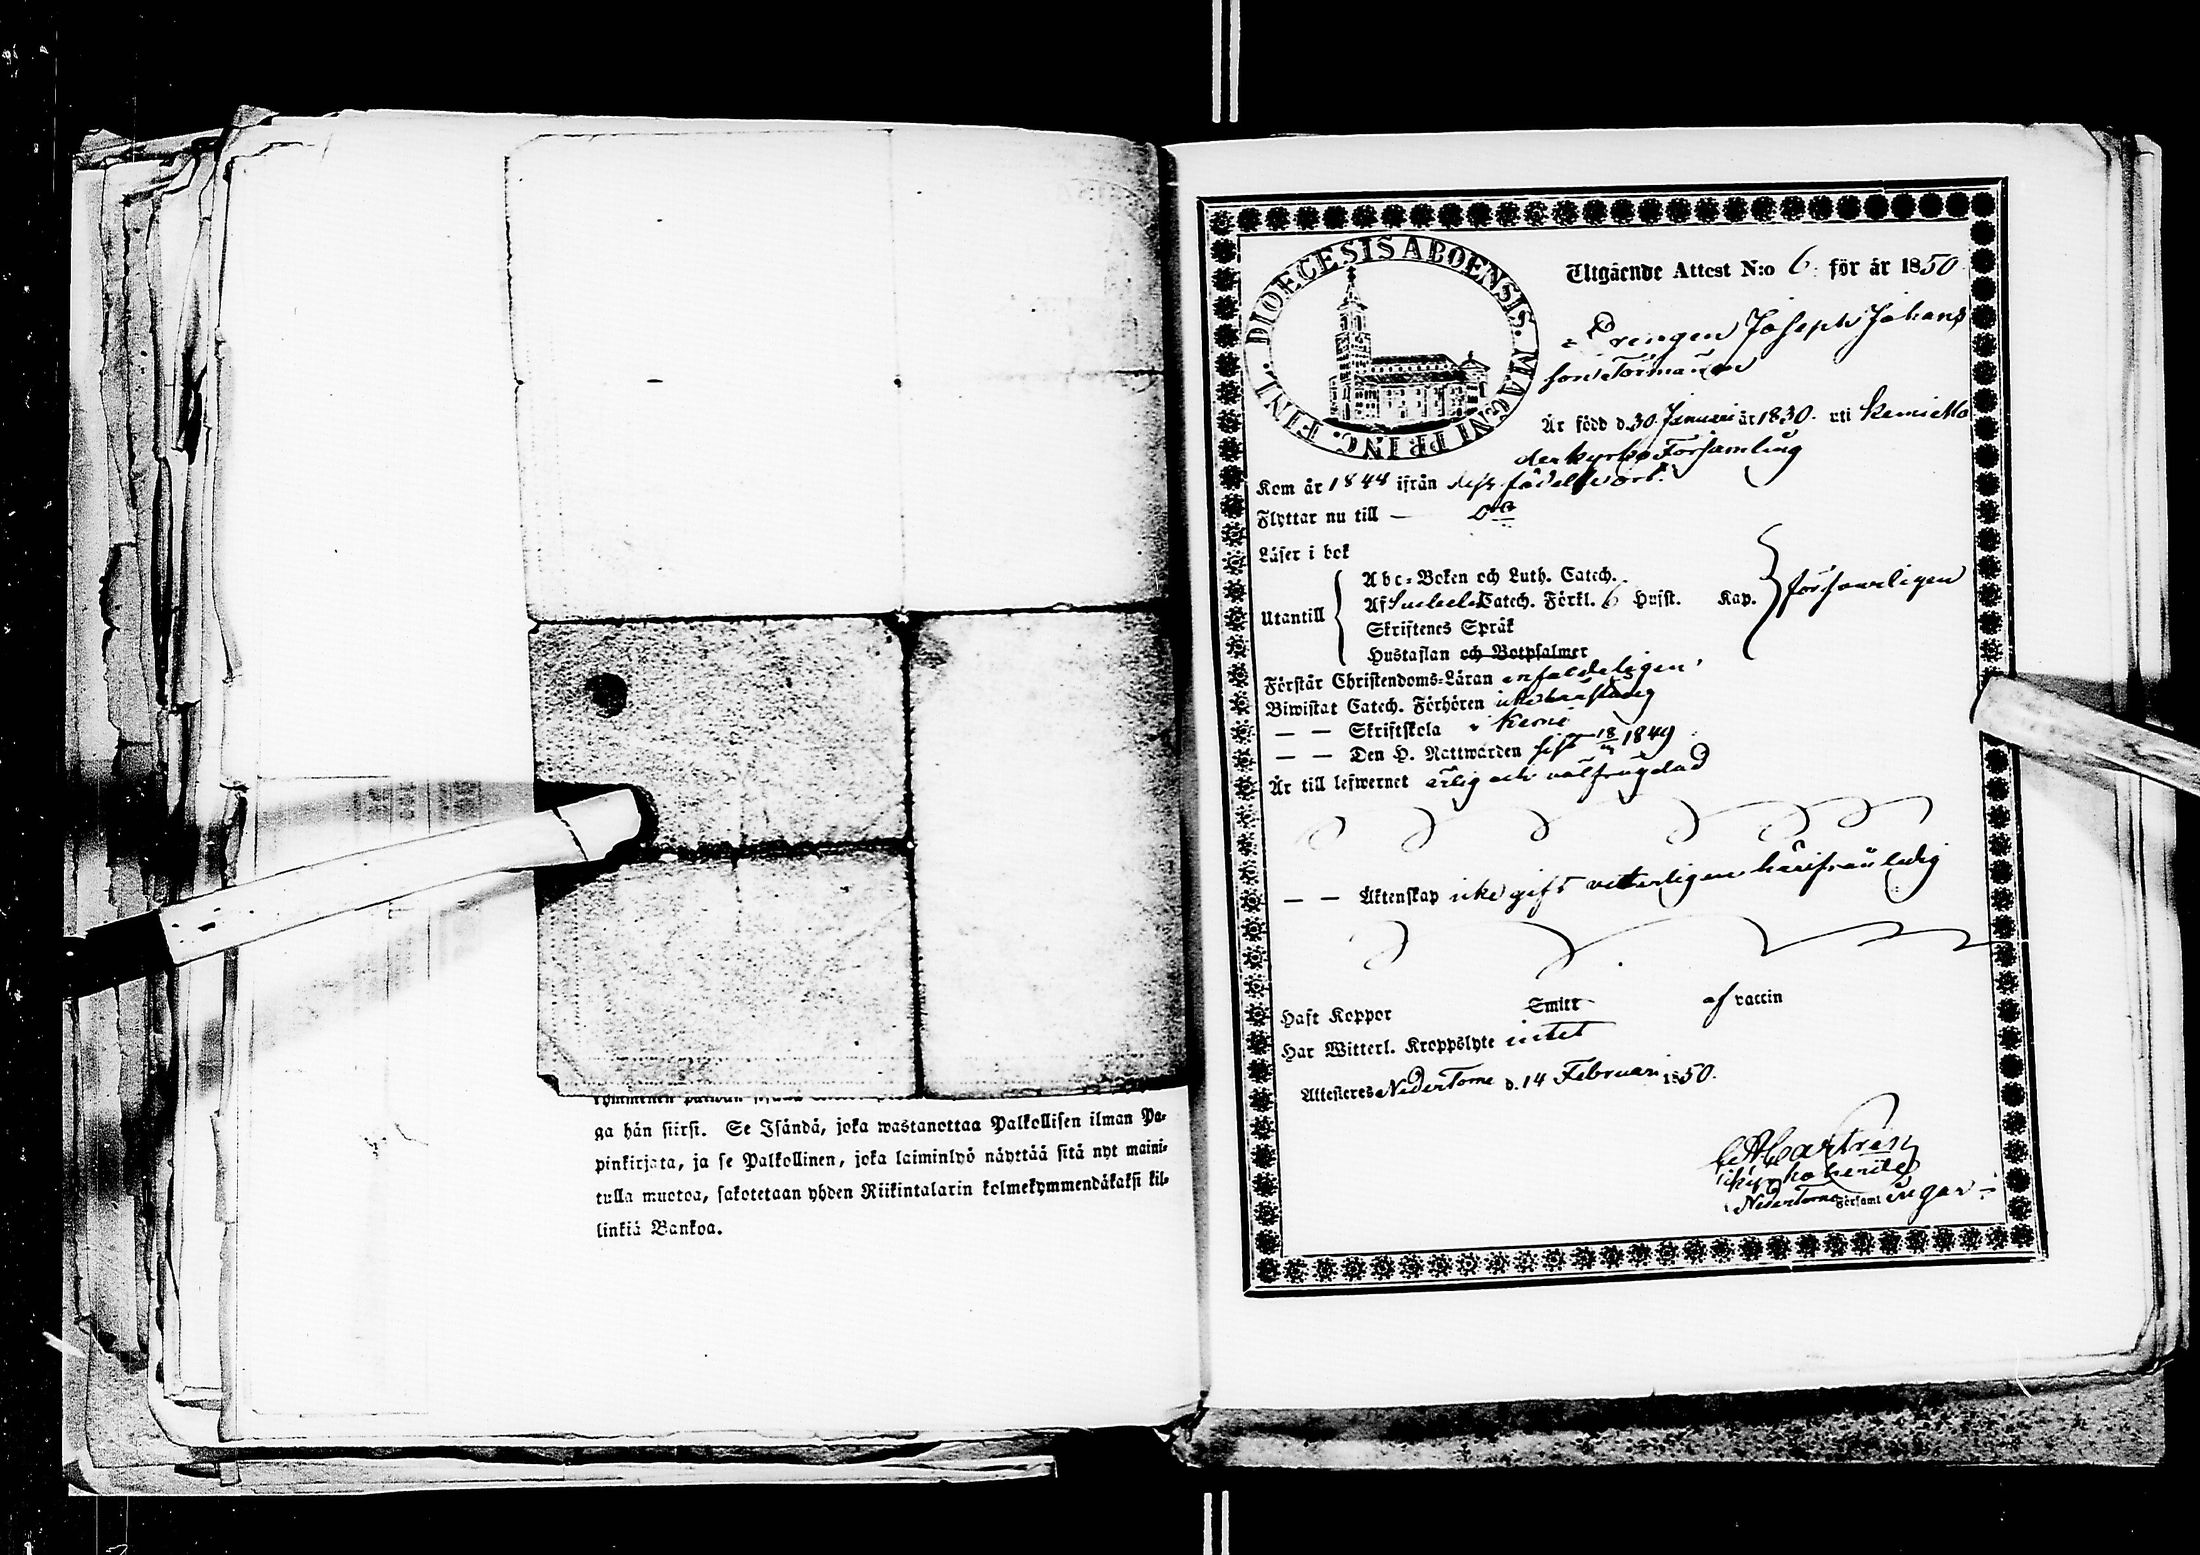 ga hän siirsi. Se Isändä, joka wastanottaa Palkollisen ilman Pa-
pinkirjata, ja se Palkollinen, joka laiminlyö näyttää sitä nyt maini-
tulla muotoa, sakotetaan yhden Riikintalarin kolmekymmendäkaksi kil-
linkiä Bankoa.
DIOECESIS ABOENSIS. MAGNI PRINC. FINL.
Utgående Attest N:o 6. för år 1850
Drengen Joseph Johans
son Tormänen
Är född d. 30 Januari år 1830. uti Kemi Mo
derkyrko Församling
Kom år 1848 ifrån dess födelseort.
Flyttar nu till —
Läser i bok
Utantill
Abc-Boken och Luth. Catech.
Af Catech. Förkl. 6 Hufst. Kap. försvarligen
Skriftenes Språk
Hustaflan och Botpsalmer
Förstår Christendoms-Läran enfaldeligen
Biwistat Catech. Förhören
— — Skriftskola i Kemi
— — Den H. Nattwarden sist 18 1849
Är till lefwernet ärlig och välfrägdad
— — Äktenskap icke gift veterligen härifrån ledig
Haft Koppor Smitt af vaccin
Har Witterl. Kroppslyte intet
Attesteres NederTorne d. 14 Februari 1850.
Kyrkoherde
NederTorne Församl ingar